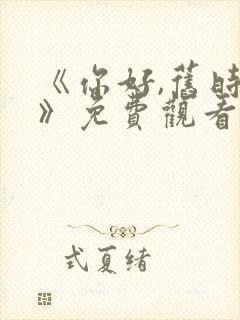 《你好,舊時
》免費觀看
式夏绪